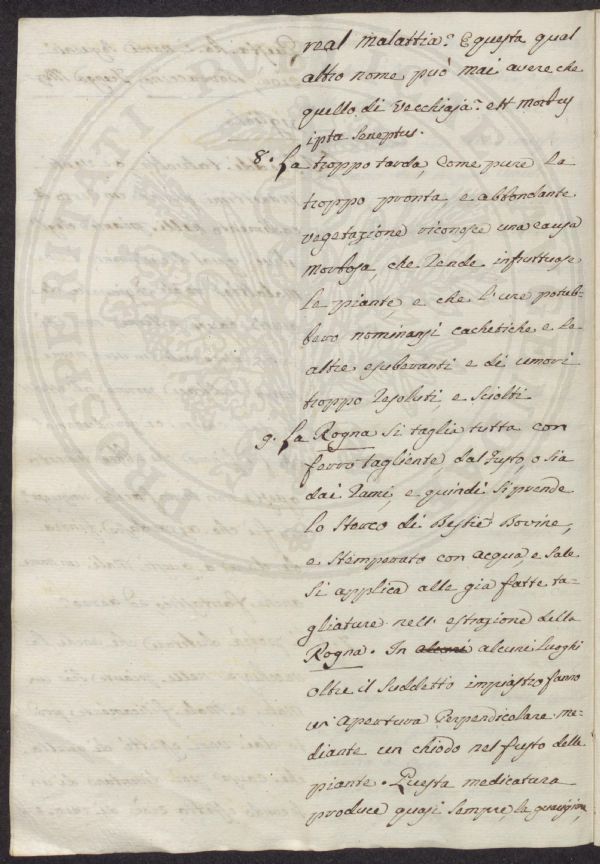 real malattia? E questa qual
altro nome può mai avere che
quello di Vecchiaja? est morbus
ipsa Senectus.
8. La troppo tarda, come pure la
troppo pronta, e abbondante
vegetazione riconosce una causa
morbosa, che rende infruttuose
le piante, e che l'une potreb-
bero nominarsi cachetiche e le
altre esuberanti e di umori
troppo resoluti, e sciolti.
9. La Rogna si taglia tutta con
ferro tagliente, dal fusto, o sia
dai rami, e quindi si prende
lo sterco di Bestie Bovine,
e stemperato con acqua, e sale
si applica alle già fatte ta-
gliature nell'estrazione della
Rogna. In alcuni alcuni luoghi
oltre il suddetto impiastro fanno
un'apertura Perpendicolare me-
diante un chiodo nel fusto delle
piante. Questa medicatura
produce quasi sempre la guarigione,